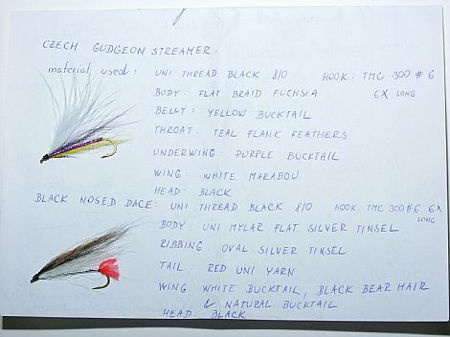 CZECH GUDGEON STREAMER:
material used: UNI THREAD BLACK 8/0 HOOK: TMC 300 # 6
BODY: FLAT BRAID FUCHSIA 6X LONG
BELLY: YELLOW BUCKTAIL
THROAT: TEAL FLANK FEATHERS
UNDERWING: PURPLE BUCKTAIL
WING: WHITE MARABOU
HEAD: BLACK
BLACK NOSED DACE: UNI THREAD BLACK 8/0 HOOK: TMC 300 #6 6X
LONG
BODY: UNI MYLAR FLAT SILVER TINSEL
RIBBING: OVAL SILVER TINSEL
TAIL: RED UNI YARN
WING WHITE BUCKTAIL, BLACK BEAR HAIR
& NATURAL BUCKTAIL
HEAD: BLACK